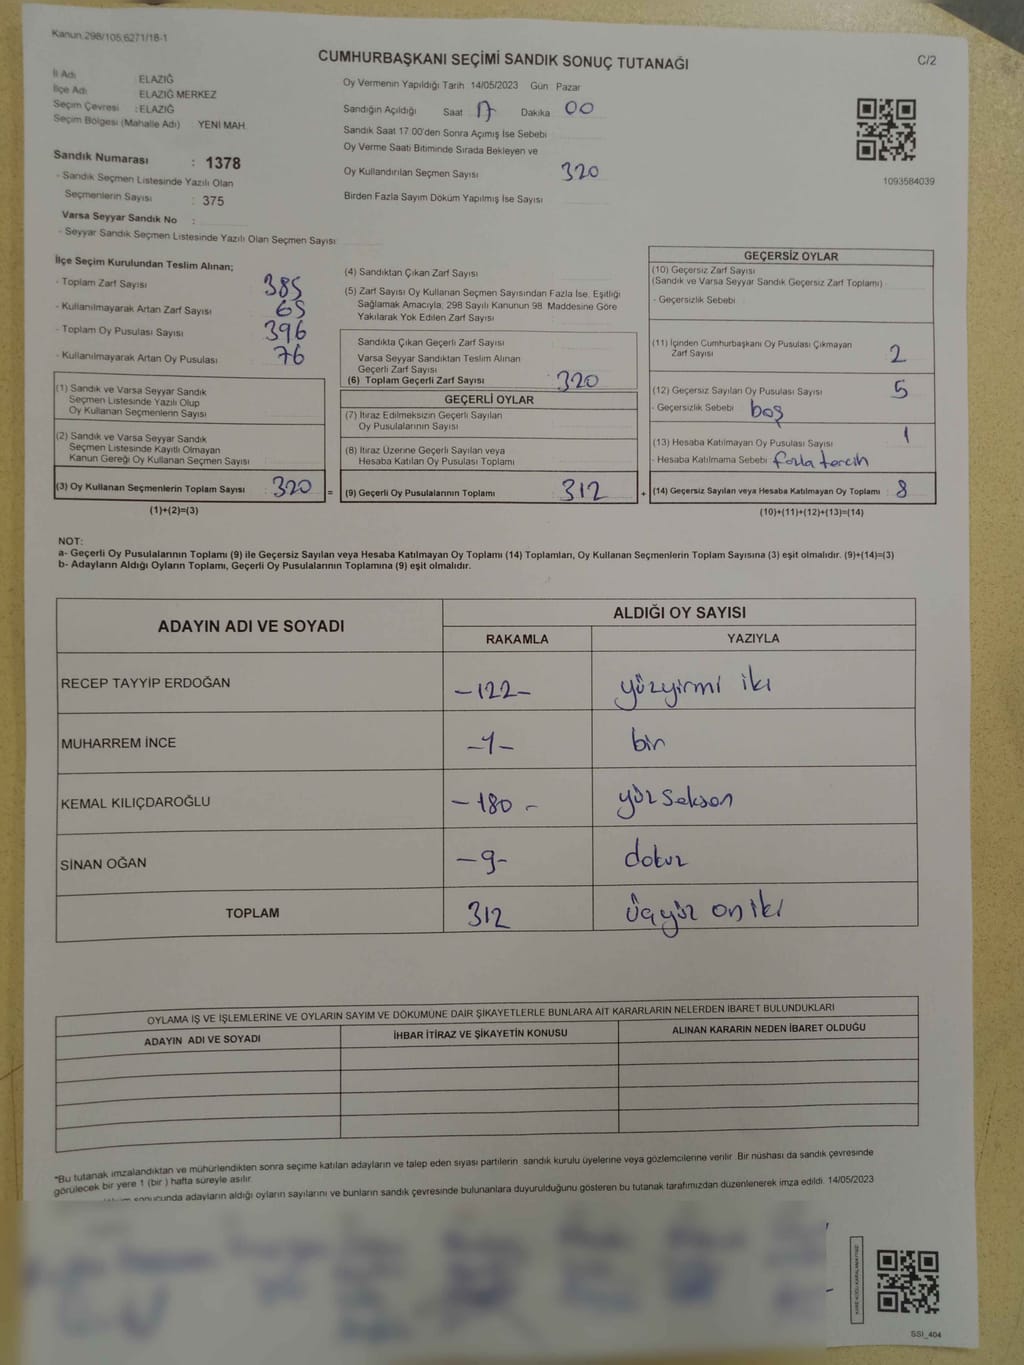 Kanun.298/105,6271/18-1
CUMHURBAŞKANI SEÇİMİ SANDIK SONUÇ TUTANAĞI
C/2
İl Adı ELAZIĞ
İlçe Adı ELAZIĞ MERKEZ
Seçim Çevresi : ELAZIĞ
Seçim Bölgesi (Mahalle Adı) YENİ MAH.
Sandık Numarası : 1378
- Sandık Seçmen Listesinde Yazılı Olan
Seçmenlerin Sayısı : 375
Varsa Seyyar Sandık No :
- Seyyar Sandık Seçmen Listesinde Yazılı Olan Seçmen Sayısı
Oy Vermenin Yapıldığı Tarih 14/05/2023 Gün Pazar
Sandığın Açıldığı Saat 17 Dakika 00
Sandık Saat 17.00'den Sonra Açımış İse Sebebi
Oy Verme Saati Bitiminde Sırada Bekleyen ve
Oy Kullandırılan Seçmen Sayısı 320
Birden Fazla Sayım Döküm Yapılmış İse Sayısı
1093584039
İlçe Seçim Kurulundan Teslim Alınan;
- Toplam Zarf Sayısı 385
- Kullanılmayarak Artan Zarf Sayısı 65
- Toplam Oy Pusulası Sayısı 396
- Kullanılmayarak Artan Oy Pusulası 76
(1) Sandık ve Varsa Seyyar Sandık
Seçmen Listesinde Yazılı Olup
Oy Kullanan Seçmenlerin Sayısı
(2) Sandık ve Varsa Seyyar Sandık
Seçmen Listesinde Kayıtlı Olmayan
Kanun Gereği Oy Kullanan Seçmen Sayısı
(3) Oy Kullanan Seçmenlerin Toplam Sayısı : 320 =
(1)+(2)=(3)
(4) Sandıktan Çıkan Zarf Sayısı
(5) Zarf Sayısı Oy Kullanan Seçmen Sayısından Fazla İse, Eşitliği
Sağlamak Amacıyla; 298 Sayılı Kanunun 98. Maddesine Göre
Yakılarak Yok Edilen Zarf Sayısı
Sandıkta Çıkan Geçerli Zarf Sayısı
Varsa Seyyar Sandıktan Teslim Alınan
Geçerli Zarf Sayısı
(6) Toplam Geçerli Zarf Sayısı : 320
GEÇERLİ OYLAR
(7) İtiraz Edilmeksizin Geçerli Sayılan
Oy Pusulalarının Sayısı
(8) İtiraz Üzerine Geçerli Sayılan veya
Hesaba Katılan Oy Pusulası Toplamı
(9) Geçerli Oy Pusulalarının Toplamı : 312 +
GEÇERSİZ OYLAR
(10) Geçersiz Zarf Sayısı
(Sandık ve Varsa Seyyar Sandık Geçersiz Zarf Toplamı)
- Geçersizlik Sebebi
(11) İçinden Cumhurbaşkanı Oy Pusulası Çıkmayan
Zarf Sayısı 2
(12) Geçersiz Sayılan Oy Pusulası Sayısı 5
- Geçersizlik Sebebi boş
(13) Hesaba Katılmayan Oy Pusulası Sayısı 1
- Hesaba Katılmama Sebebi fazla tercih
(14) Geçersiz Sayılan veya Hesaba Katılmayan Oy Toplamı : 8
(10)+(11)+(12)+(13)=(14)
NOT:
a- Geçerli Oy Pusulalarının Toplamı (9) ile Geçersiz Sayılan veya Hesaba Katılmayan Oy Toplamı (14) Toplamları, Oy Kullanan Seçmenlerin Toplam Sayısına (3) eşit olmalıdır. (9)+(14)=(3)
b- Adayların Aldığı Oyların Toplamı, Geçerli Oy Pusulalarının Toplamına (9) eşit olmalıdır.
ADAYIN ADI VE SOYADI
ALDIĞI OY SAYISI
RAKAMLA YAZIYLA
RECEP TAYYİP ERDOĞAN -122- yüzyirmi iki
MUHARREM İNCE -1- bir
KEMAL KILIÇDAROĞLU -180- yüz seksen
SİNAN OĞAN -9- dokuz
TOPLAM 312 üçyüz on iki
OYLAMA İŞ VE İŞLEMLERİNE VE OYLARIN SAYIM VE DÖKÜMÜNE DAİR ŞİKAYETLERLE BUNLARA AİT KARARLARIN NELERDEN İBARET BULUNDUKLARI
ADAYIN ADI VE SOYADI İHBAR İTİRAZ VE ŞİKAYETİN KONUSU ALINAN KARARIN NEDEN İBARET OLDUĞU
*Bu tutanak imzalandıktan ve mühürlendikten sonra seçime katılan adayların ve talep eden siyasi partilerin sandık kurulu üyelerine veya gözlemcilerine verilir. Bir nüshası da sandık çevresinde
görülecek bir yere 1 (bir ) hafta süreyle asılır.
sonucunda adayların aldığı oyların sayılarını ve bunların sandık çevresinde bulunanlara duyurulduğunu gösteren bu tutanak tarafımızdan düzenlenerek imza edildi. 14/05/2023
SSI_404